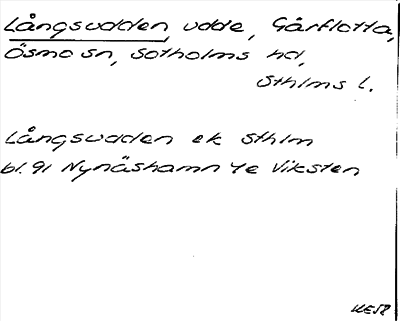 Långsudden, udde, Gårflotta,
Ösmo sn, Sotholms hd,
Sthlms l.
Långsudden ek Sthlm
bl. 91 Nynäshamn 4e Viksten